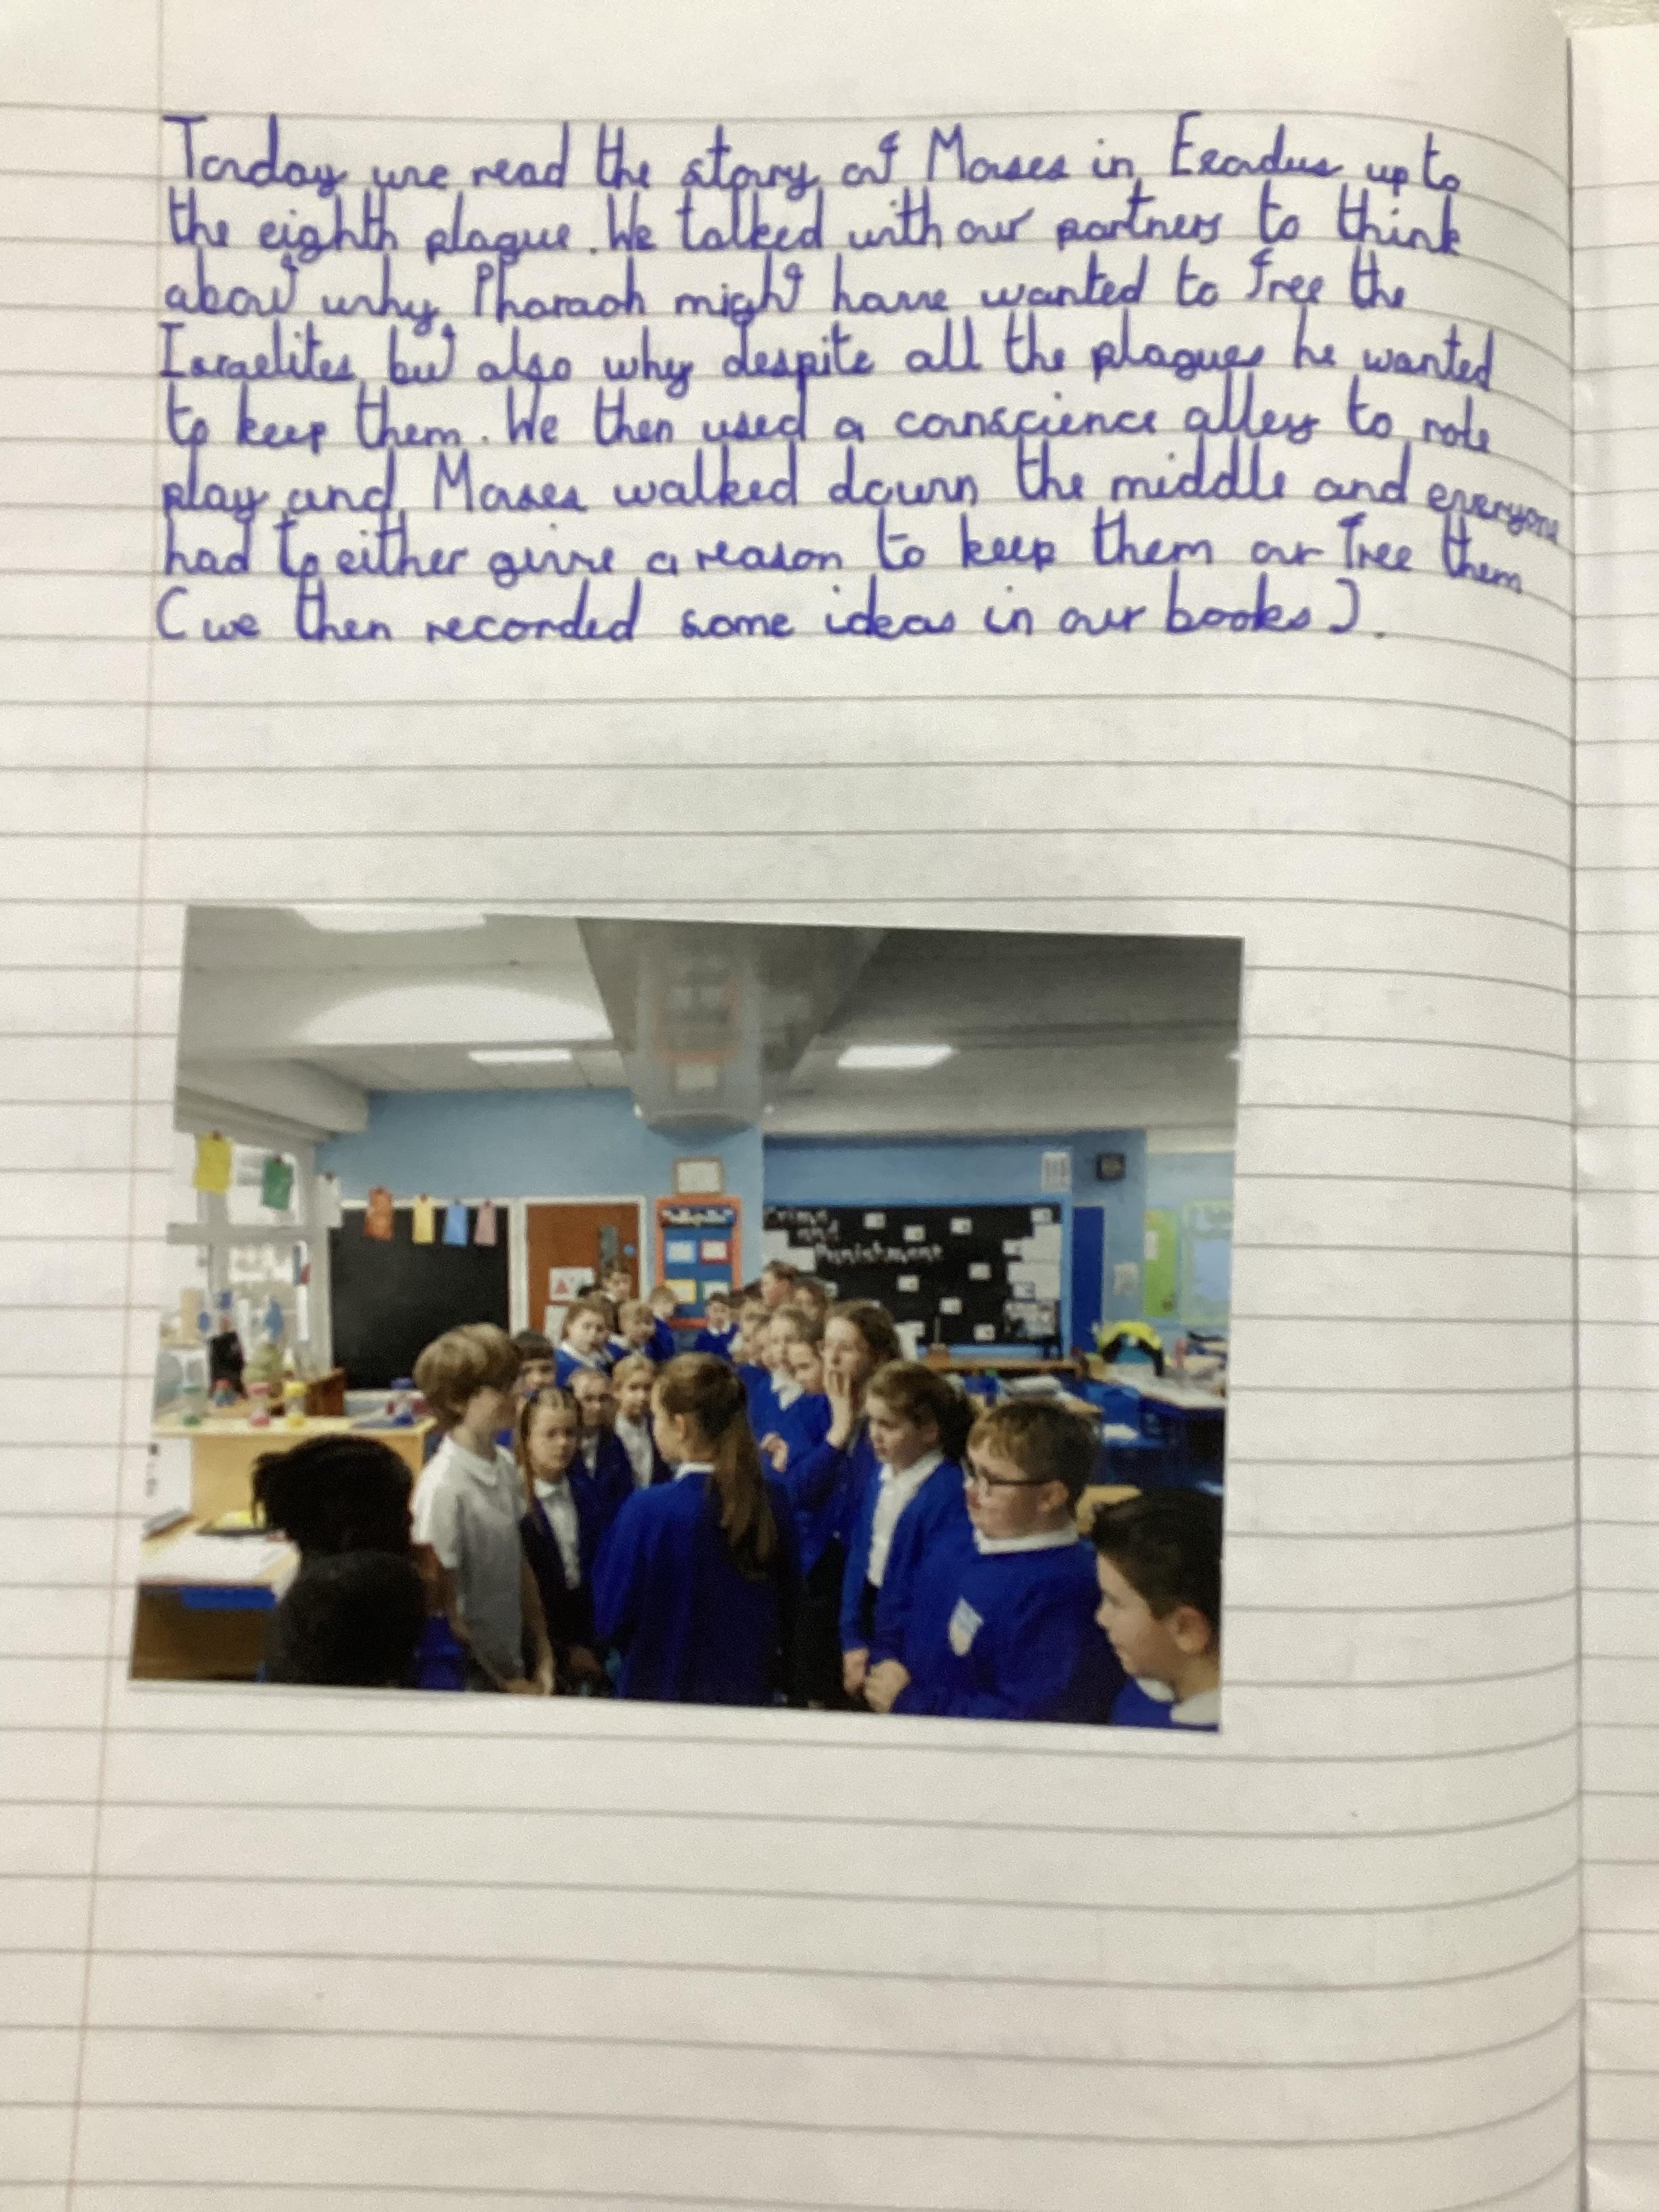 Today we read the story of Moses in Exodus up to
the eighth plague. We talked with our partners to think
about why Pharaoh might have wanted to free the
Israelites but also why despite all the plagues he wanted
to keep them. We then used a conscience alley to role
play and Moses walked down the middle and everyone
had to either give a reason to keep them or free them
(we then recorded some ideas in our books).
Crime
and
Punishment